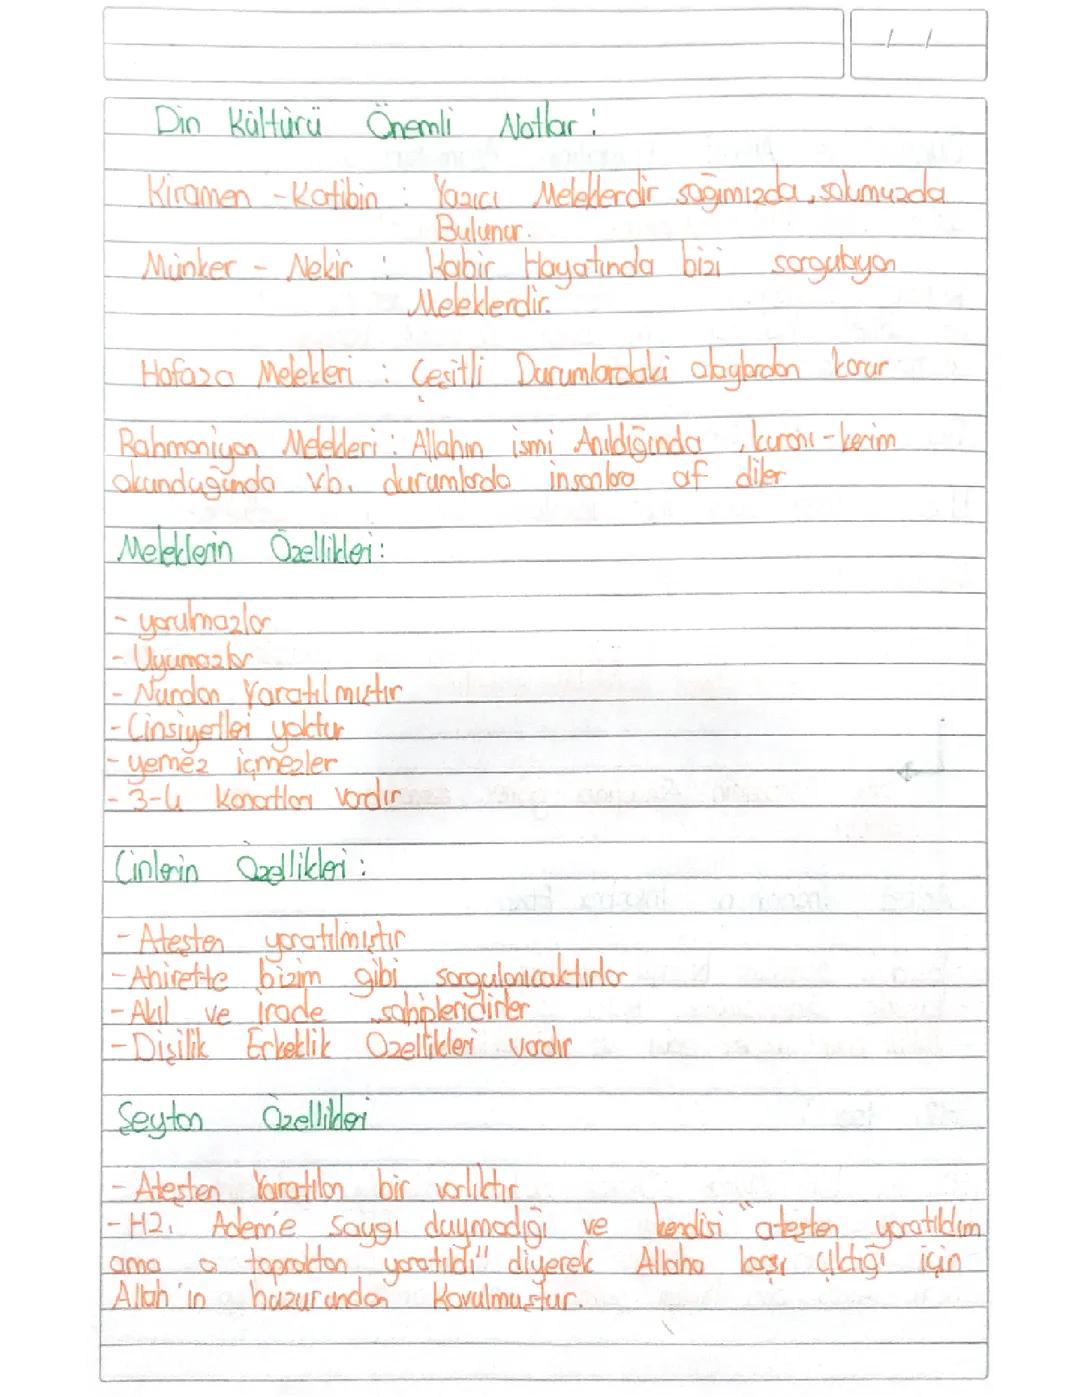 Din Kültürü Önemli Notlar :
Kiramen - Katibin : Yazıcı Meleklerdir sağımızda, solumuzda
Bulunur.
Münker - Nekir : Kabir Hayatında bizi sorgulayan
Meleklerdir.
Hafaza Melekleri : Çeşitli Durumlardaki olaylardan korur
Rahmaniyan Melekleri : Allahın ismi Anıldığında, kuranı-kerim
okunduğunda vb. durumlarda insanlara af diler
Meleklerin Özellikleri :
- yorulmazlar
- Uyumazlar
- Nurdan Yaratılmıştır
- Cinsiyetleri yoktur
- yemez içmezler
- 3-4 Kanatları Vardır
Cinlerin Özellikleri :
- Ateşten yaratılmıştır
- Ahirette bizim gibi sorgulanıcaktırlar
- Akıl ve irade sahiplendirler
- Dişilik Erkeklik Özellikleri vardır
Şeytan Özellikleri
- Ateşten Yaratılan bir varlıktır
- Hz. Adem'e saygı duymadığı ve kendisi "ateşten yaratıldım
ama o topraktan yaratıldı" diyerek Allaha karşı çıktığı için
Allah'ın huzurundan Kovulmuştur.